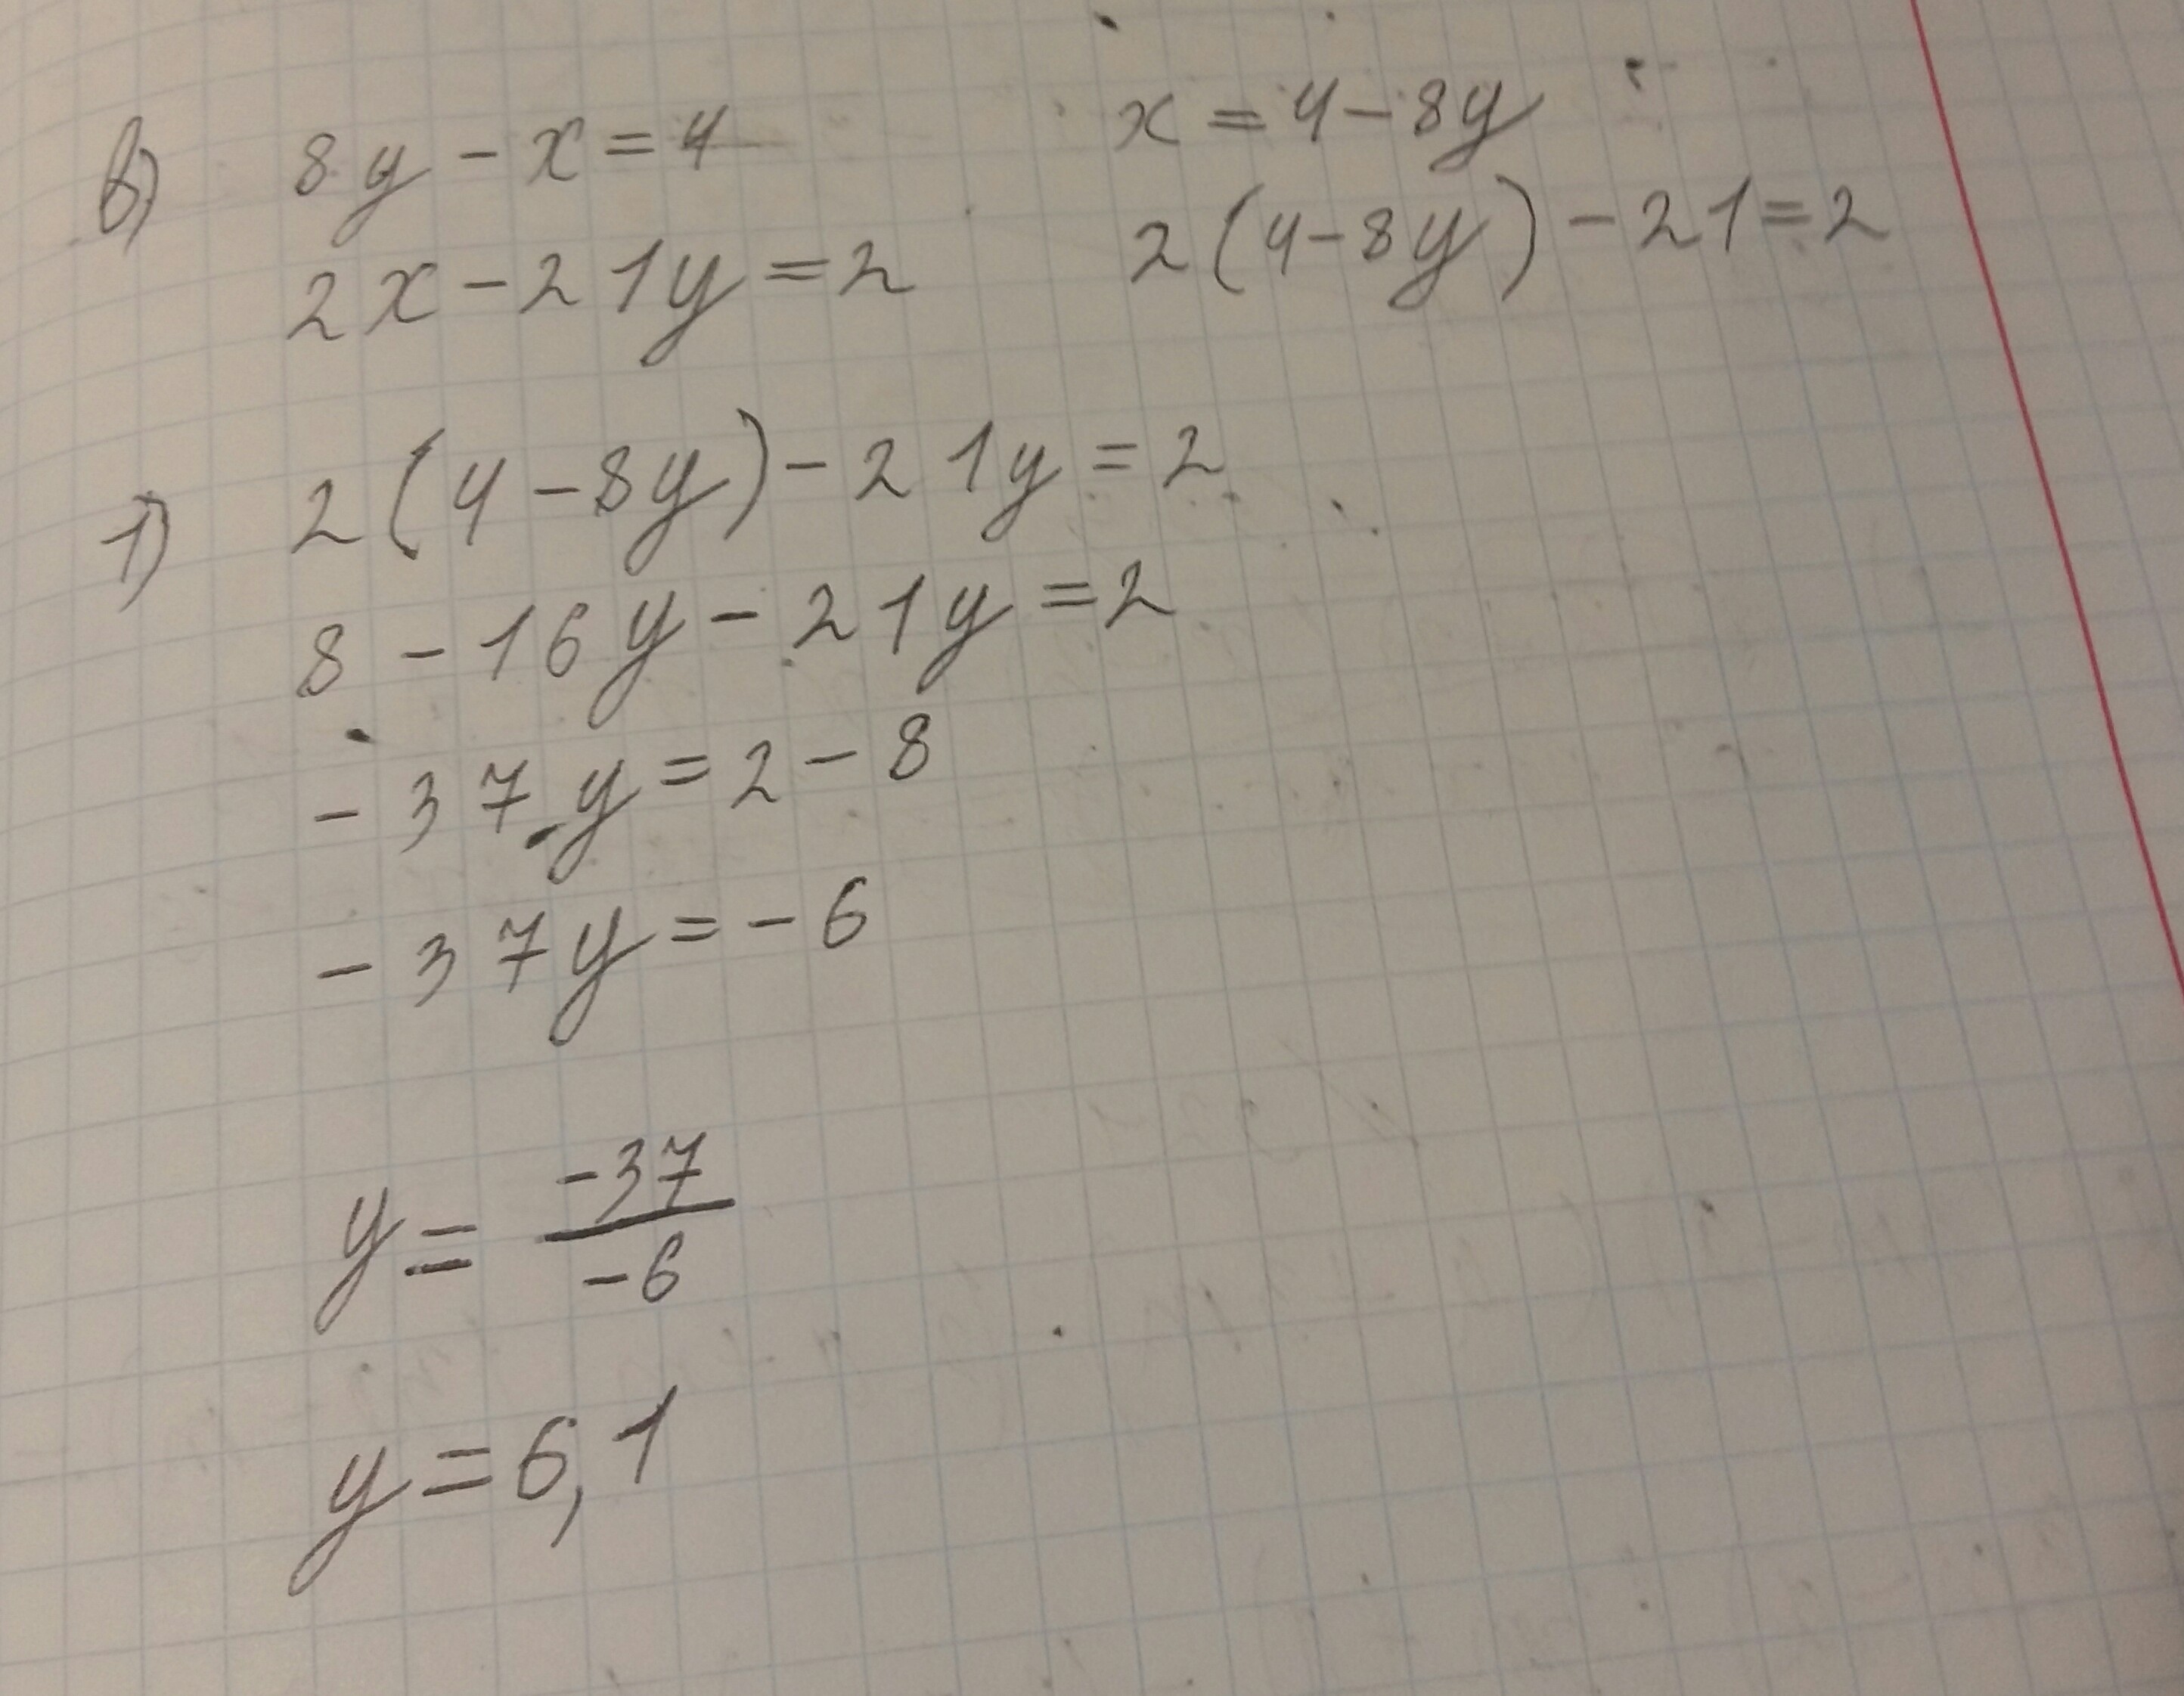 в) 8y - x = 4
2x - 21y = 2
x = 4 - 8y
2(4 - 8y) - 21 = 2
1) 2(4 - 8y) - 21y = 2
8 - 16y - 21y = 2
- 37y = 2 - 8
- 37y = - 6
y = -37/-6
y = 6,1